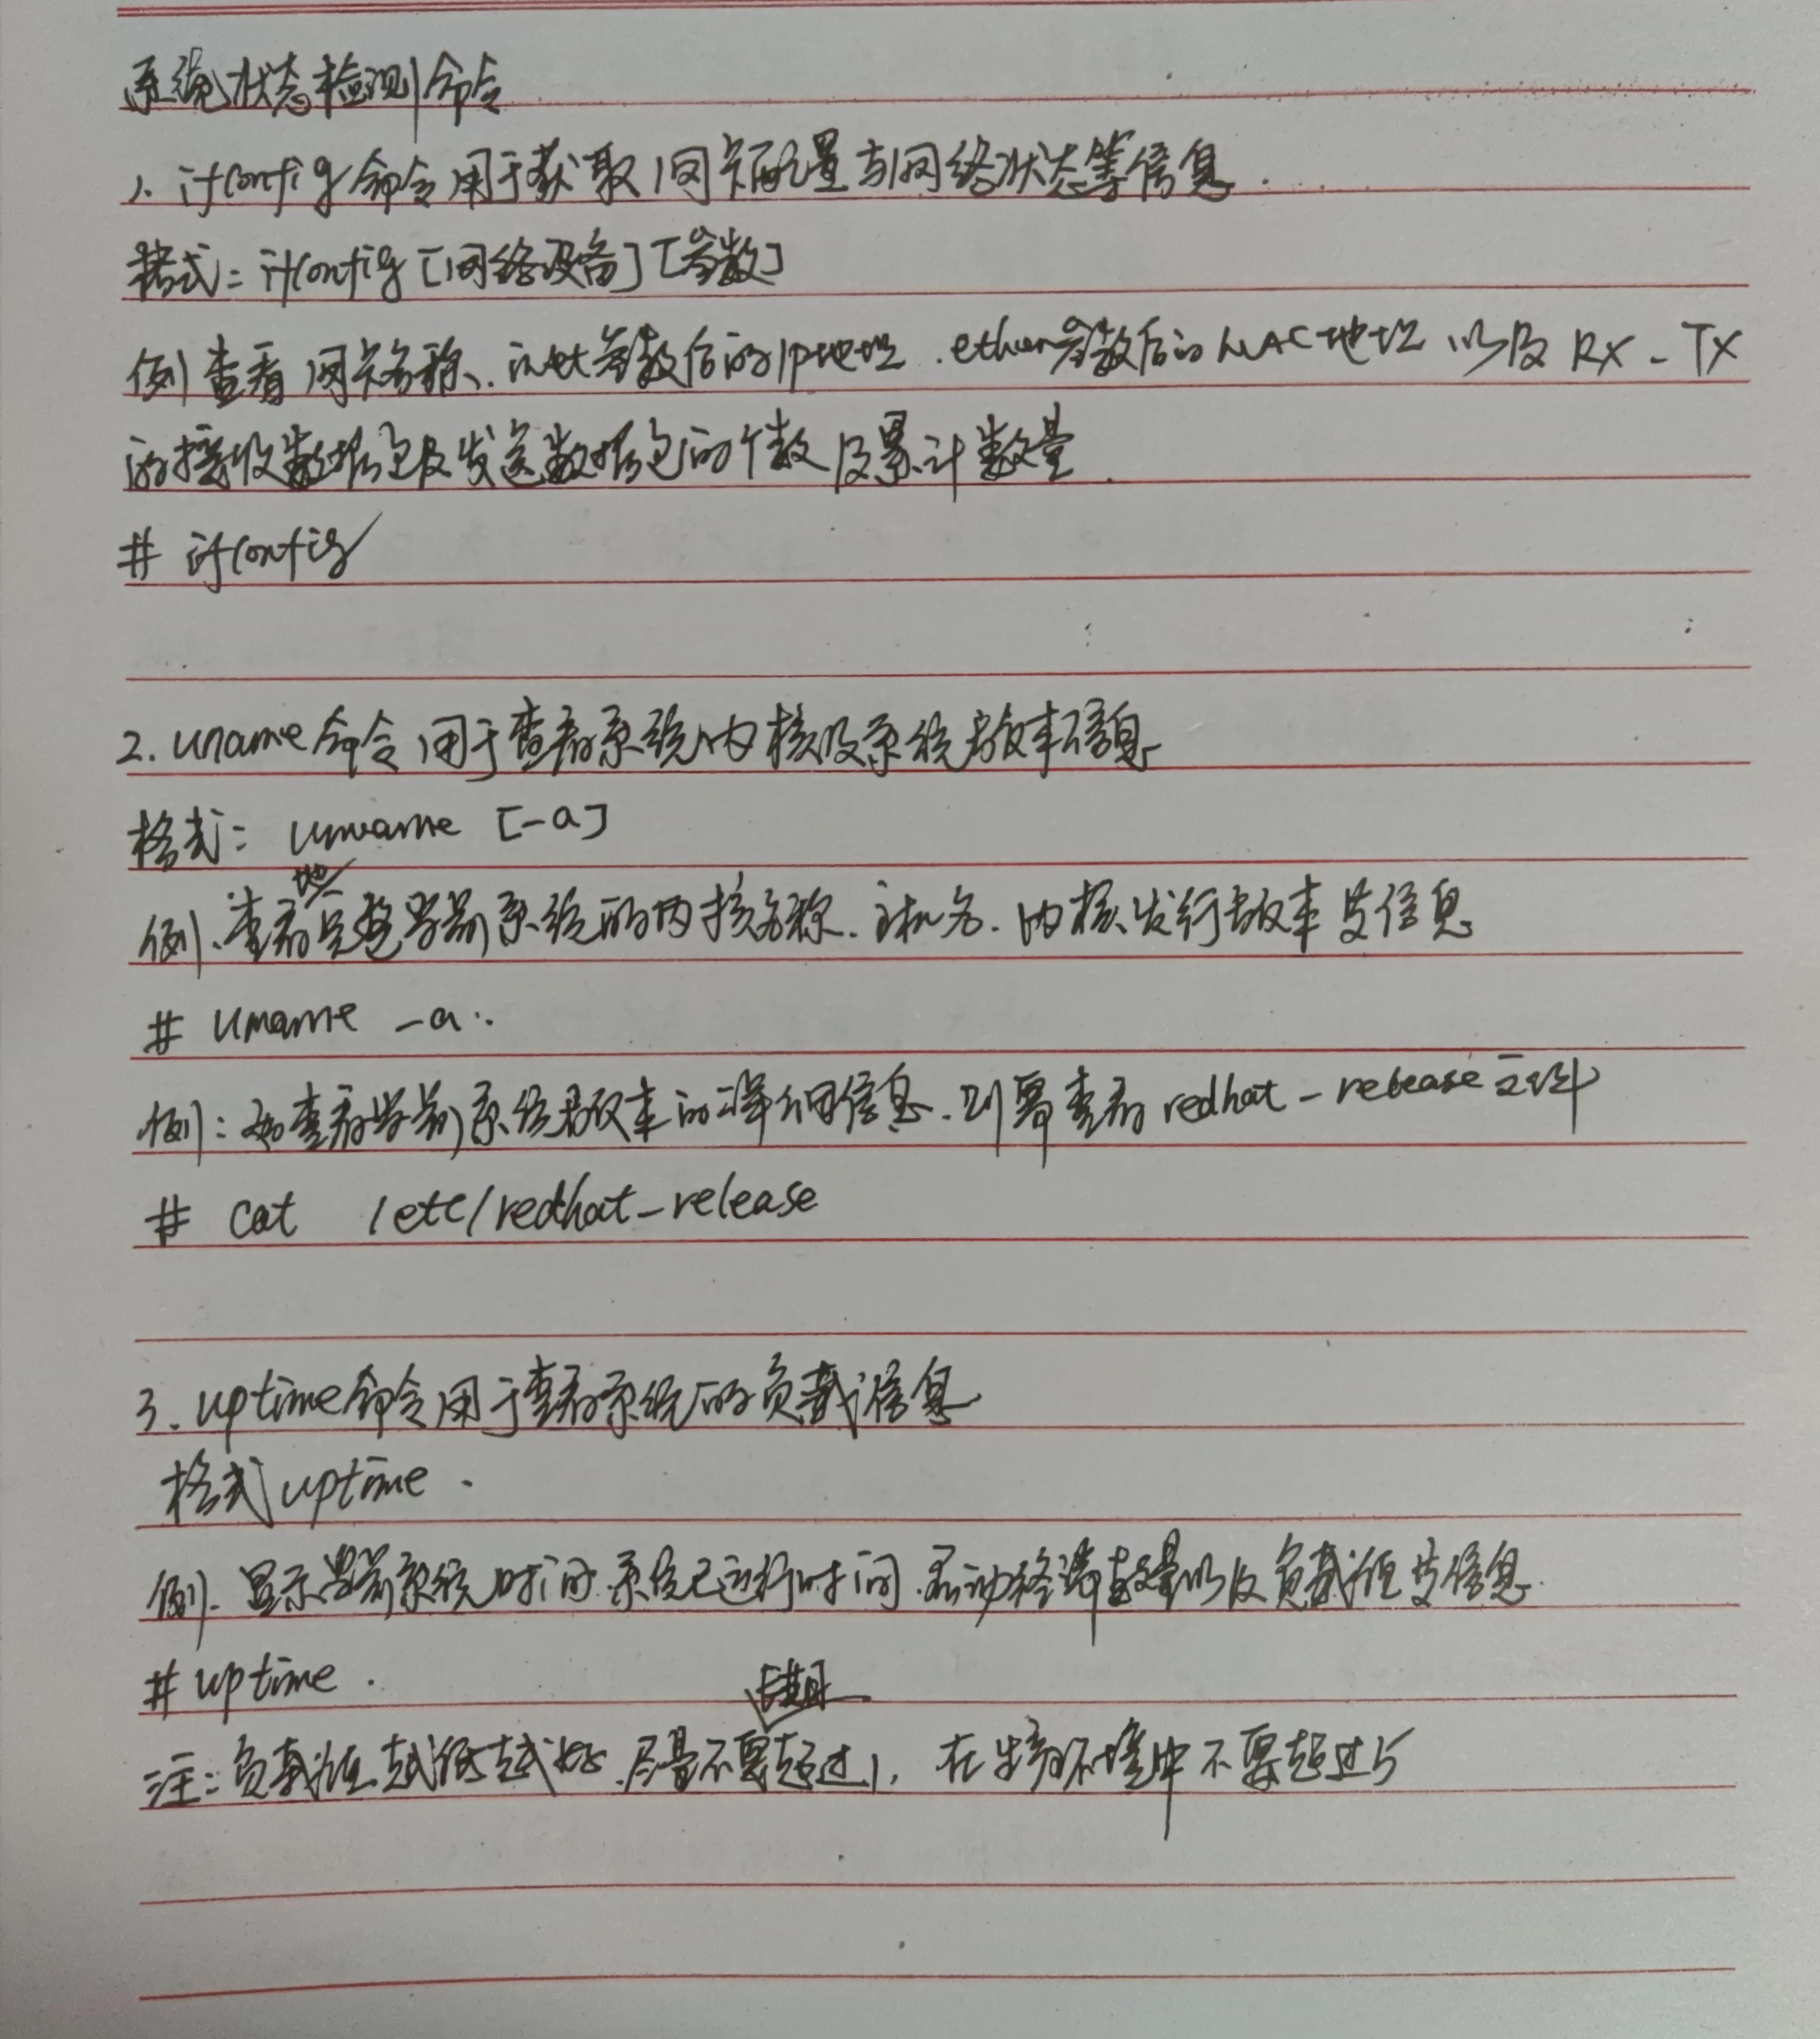 系统状态检测命令
1. ifconfig命令用于获取网卡配置与网络状态等信息.
格式: ifconfig [网络设备] [参数]
例 查看网卡名称、inet参数后的ip地址.ether参数后的MAC地址 以及 RX - TX
的接收数据包及发送数据包的个数及累计数量
# ifconfig
2. uname命令用于查看系统内核及系统版本信息
格式: uname [-a]
地
例、查看完整当前系统的内核名称.主机名.内核发行版本等信息
# uname -a.
例: 如查看当前系统版本的详细信息.则需查看redhat-release文件
# cat /etc/redhat-release
3. uptime命令用于查看系统的负载信息
格式uptime.
例. 显示当前系统时间.系统已运行时间.启动终端数量以及负载值等信息.
# uptime.
长期
注:负载值越低越好.尽量不要超过1, 在生产环境中不要超过5